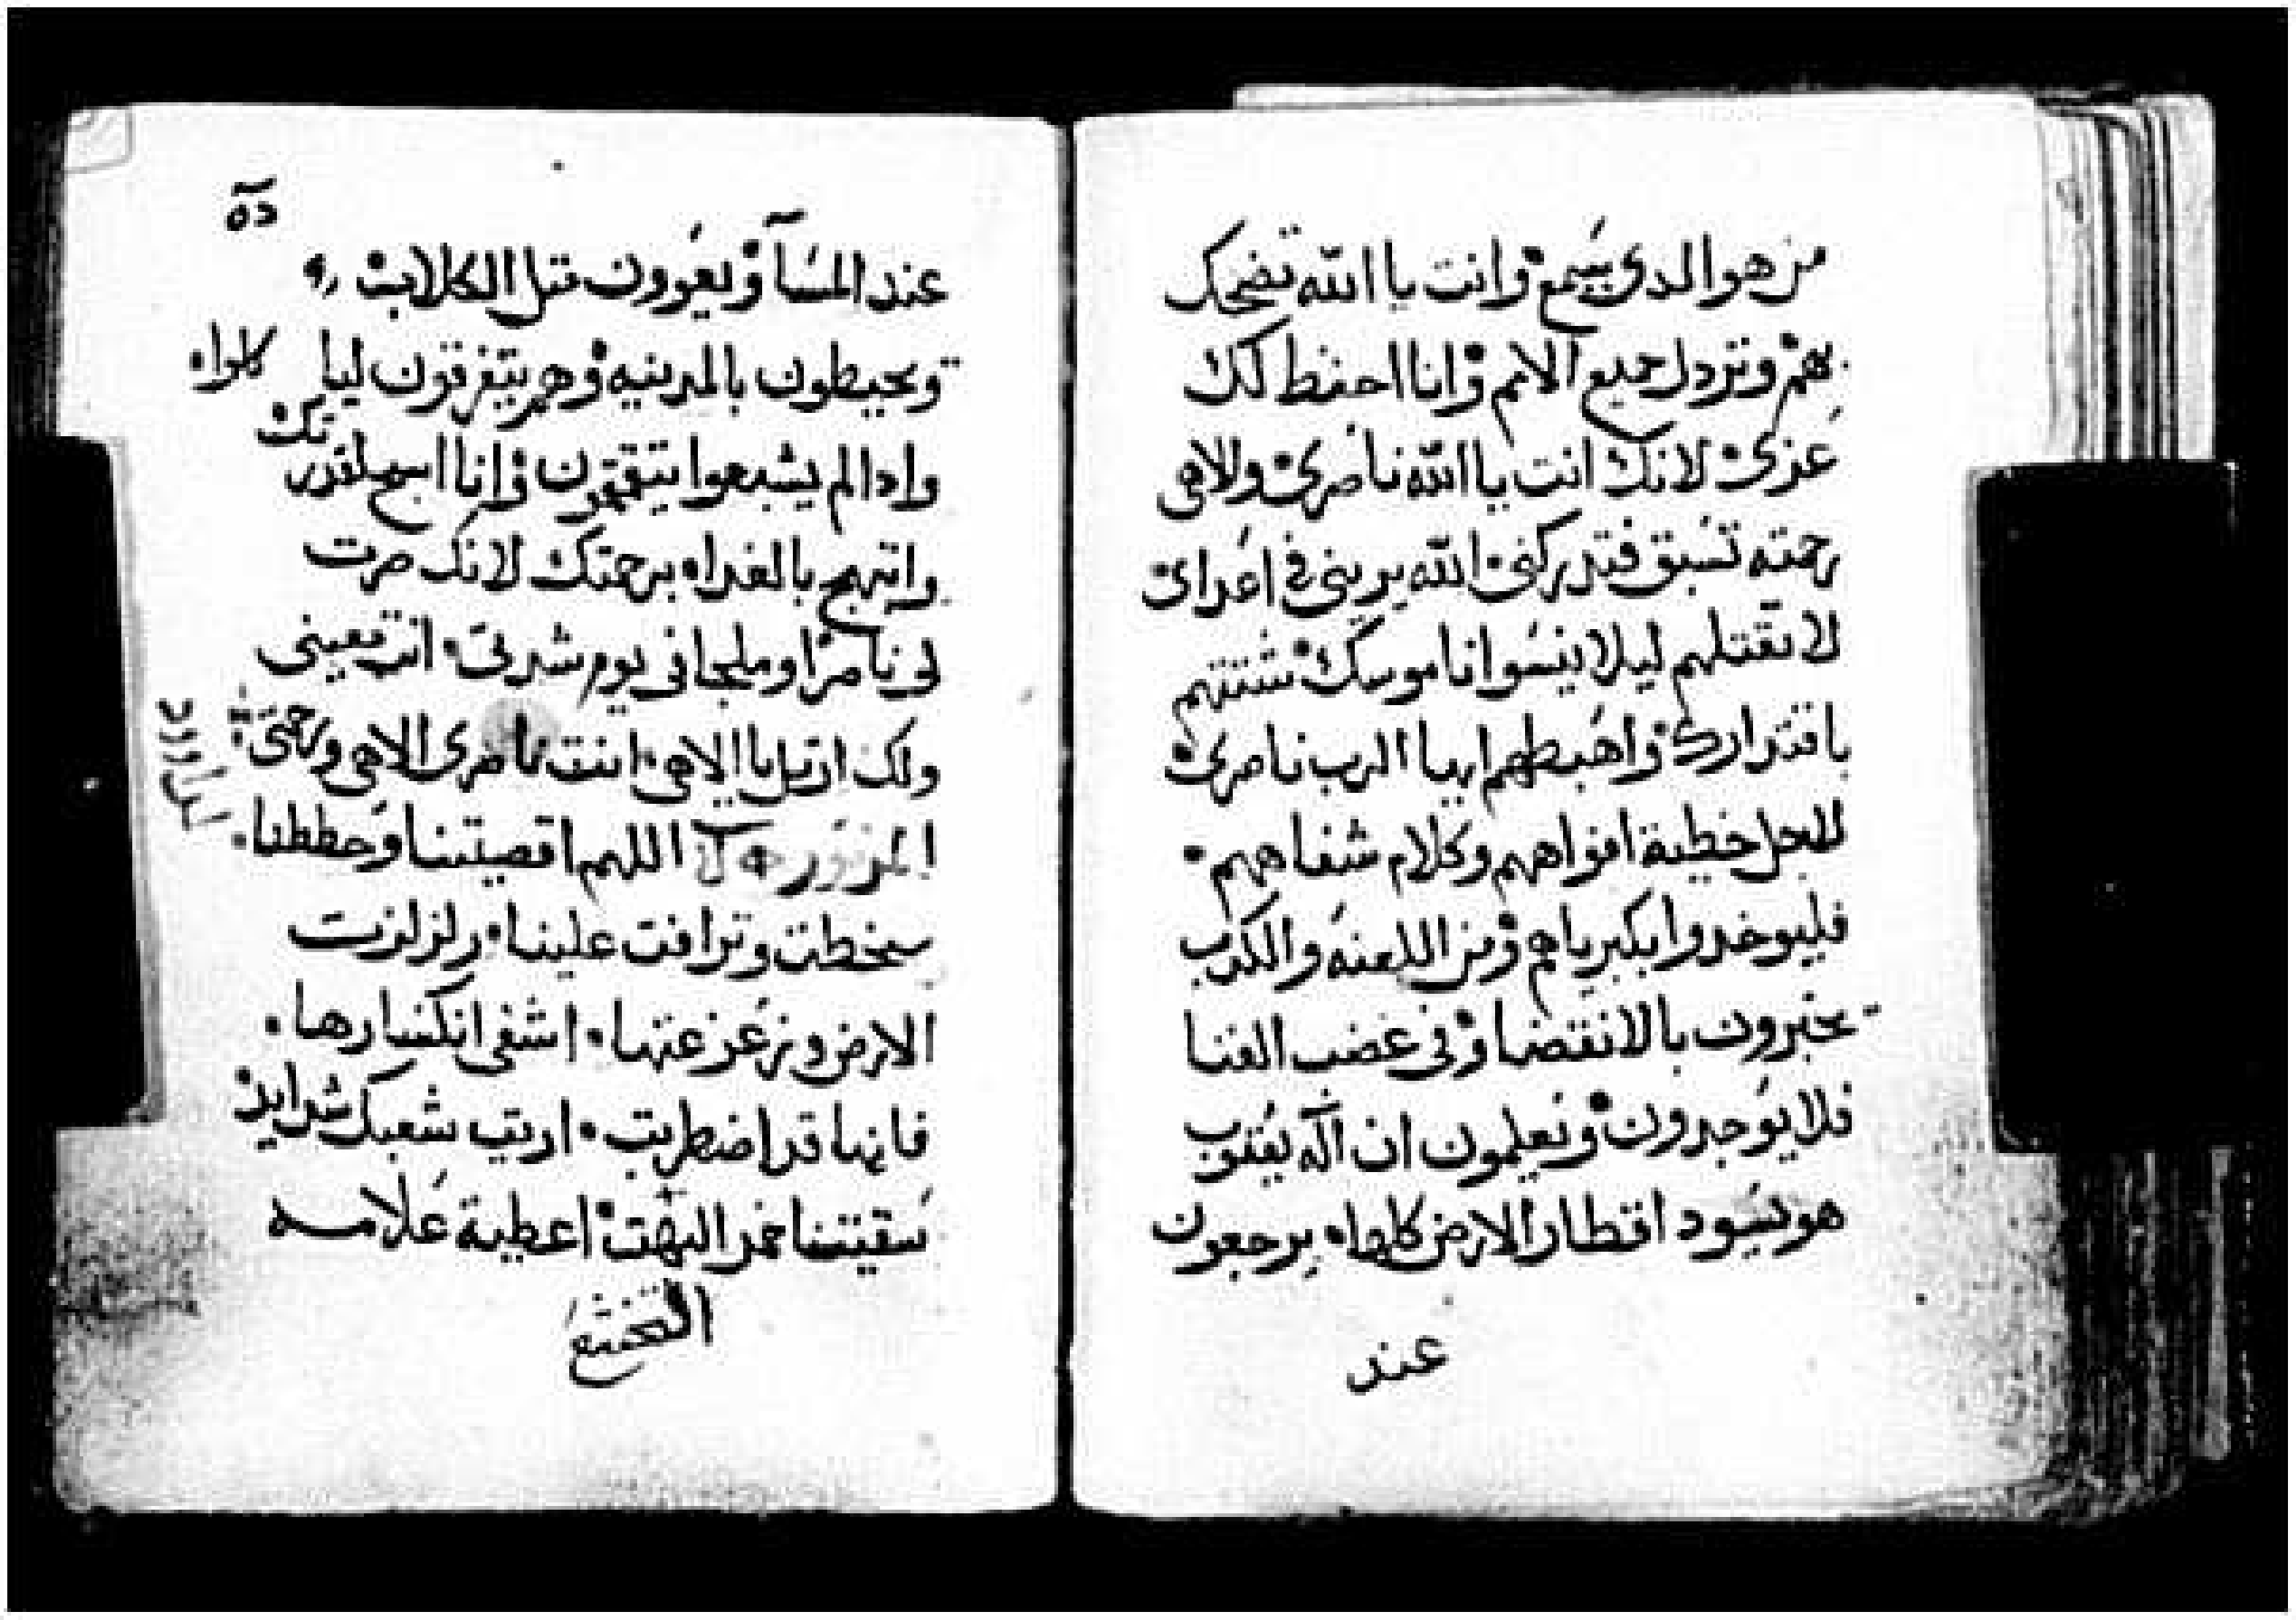 من هو الدى يسمع وانت يا الله تضحك
بهم وتزدل جميع الامم وانا احفظ لك
عزى لانك انت يا الله ناصرى والاهى
رحمته تسبق فتدركنى الله يرينى فى اعداى
لا تقتلهم ليلا ينسوا ناموسك شتتهم
باقتدارك واهبطهم ايها الرب ناصرى
لاجل خطية افواههم وكلام شفاههم
فليوخدوا بكبرياهم ومن اللعنه والكدب
يخبرون بالانقضا وفى غضب الفنا
فلا يوجدون ويعلمون ان اله يعقوب
هو يسود اقطار الارض كلها يرجعون
عند
عند المسآ ويعوون متل الكلاب
ويحيطون بالمدينه وهم يتفرقون لياكلوا
وادا لم يشبعوا يتقمقمون وانا اسبح لقدرتك
وابتهج بالغداه برحمتك لانك صرت
لى ناصرا وملجا فى يوم شدتى انت معينى
ولك ارتل يا الاهى انت ناصرى الاهى ورحمتى
المزمور اللهم اقصيتنا وحططنا
سخطت وترافت علينا زلزلت
الارض وزعزعتها اشفى انكسارها
فانها قد اضطربت اريت شعبك شدايد
سقيتنا خمر البهت اعطية علامه
التخشع